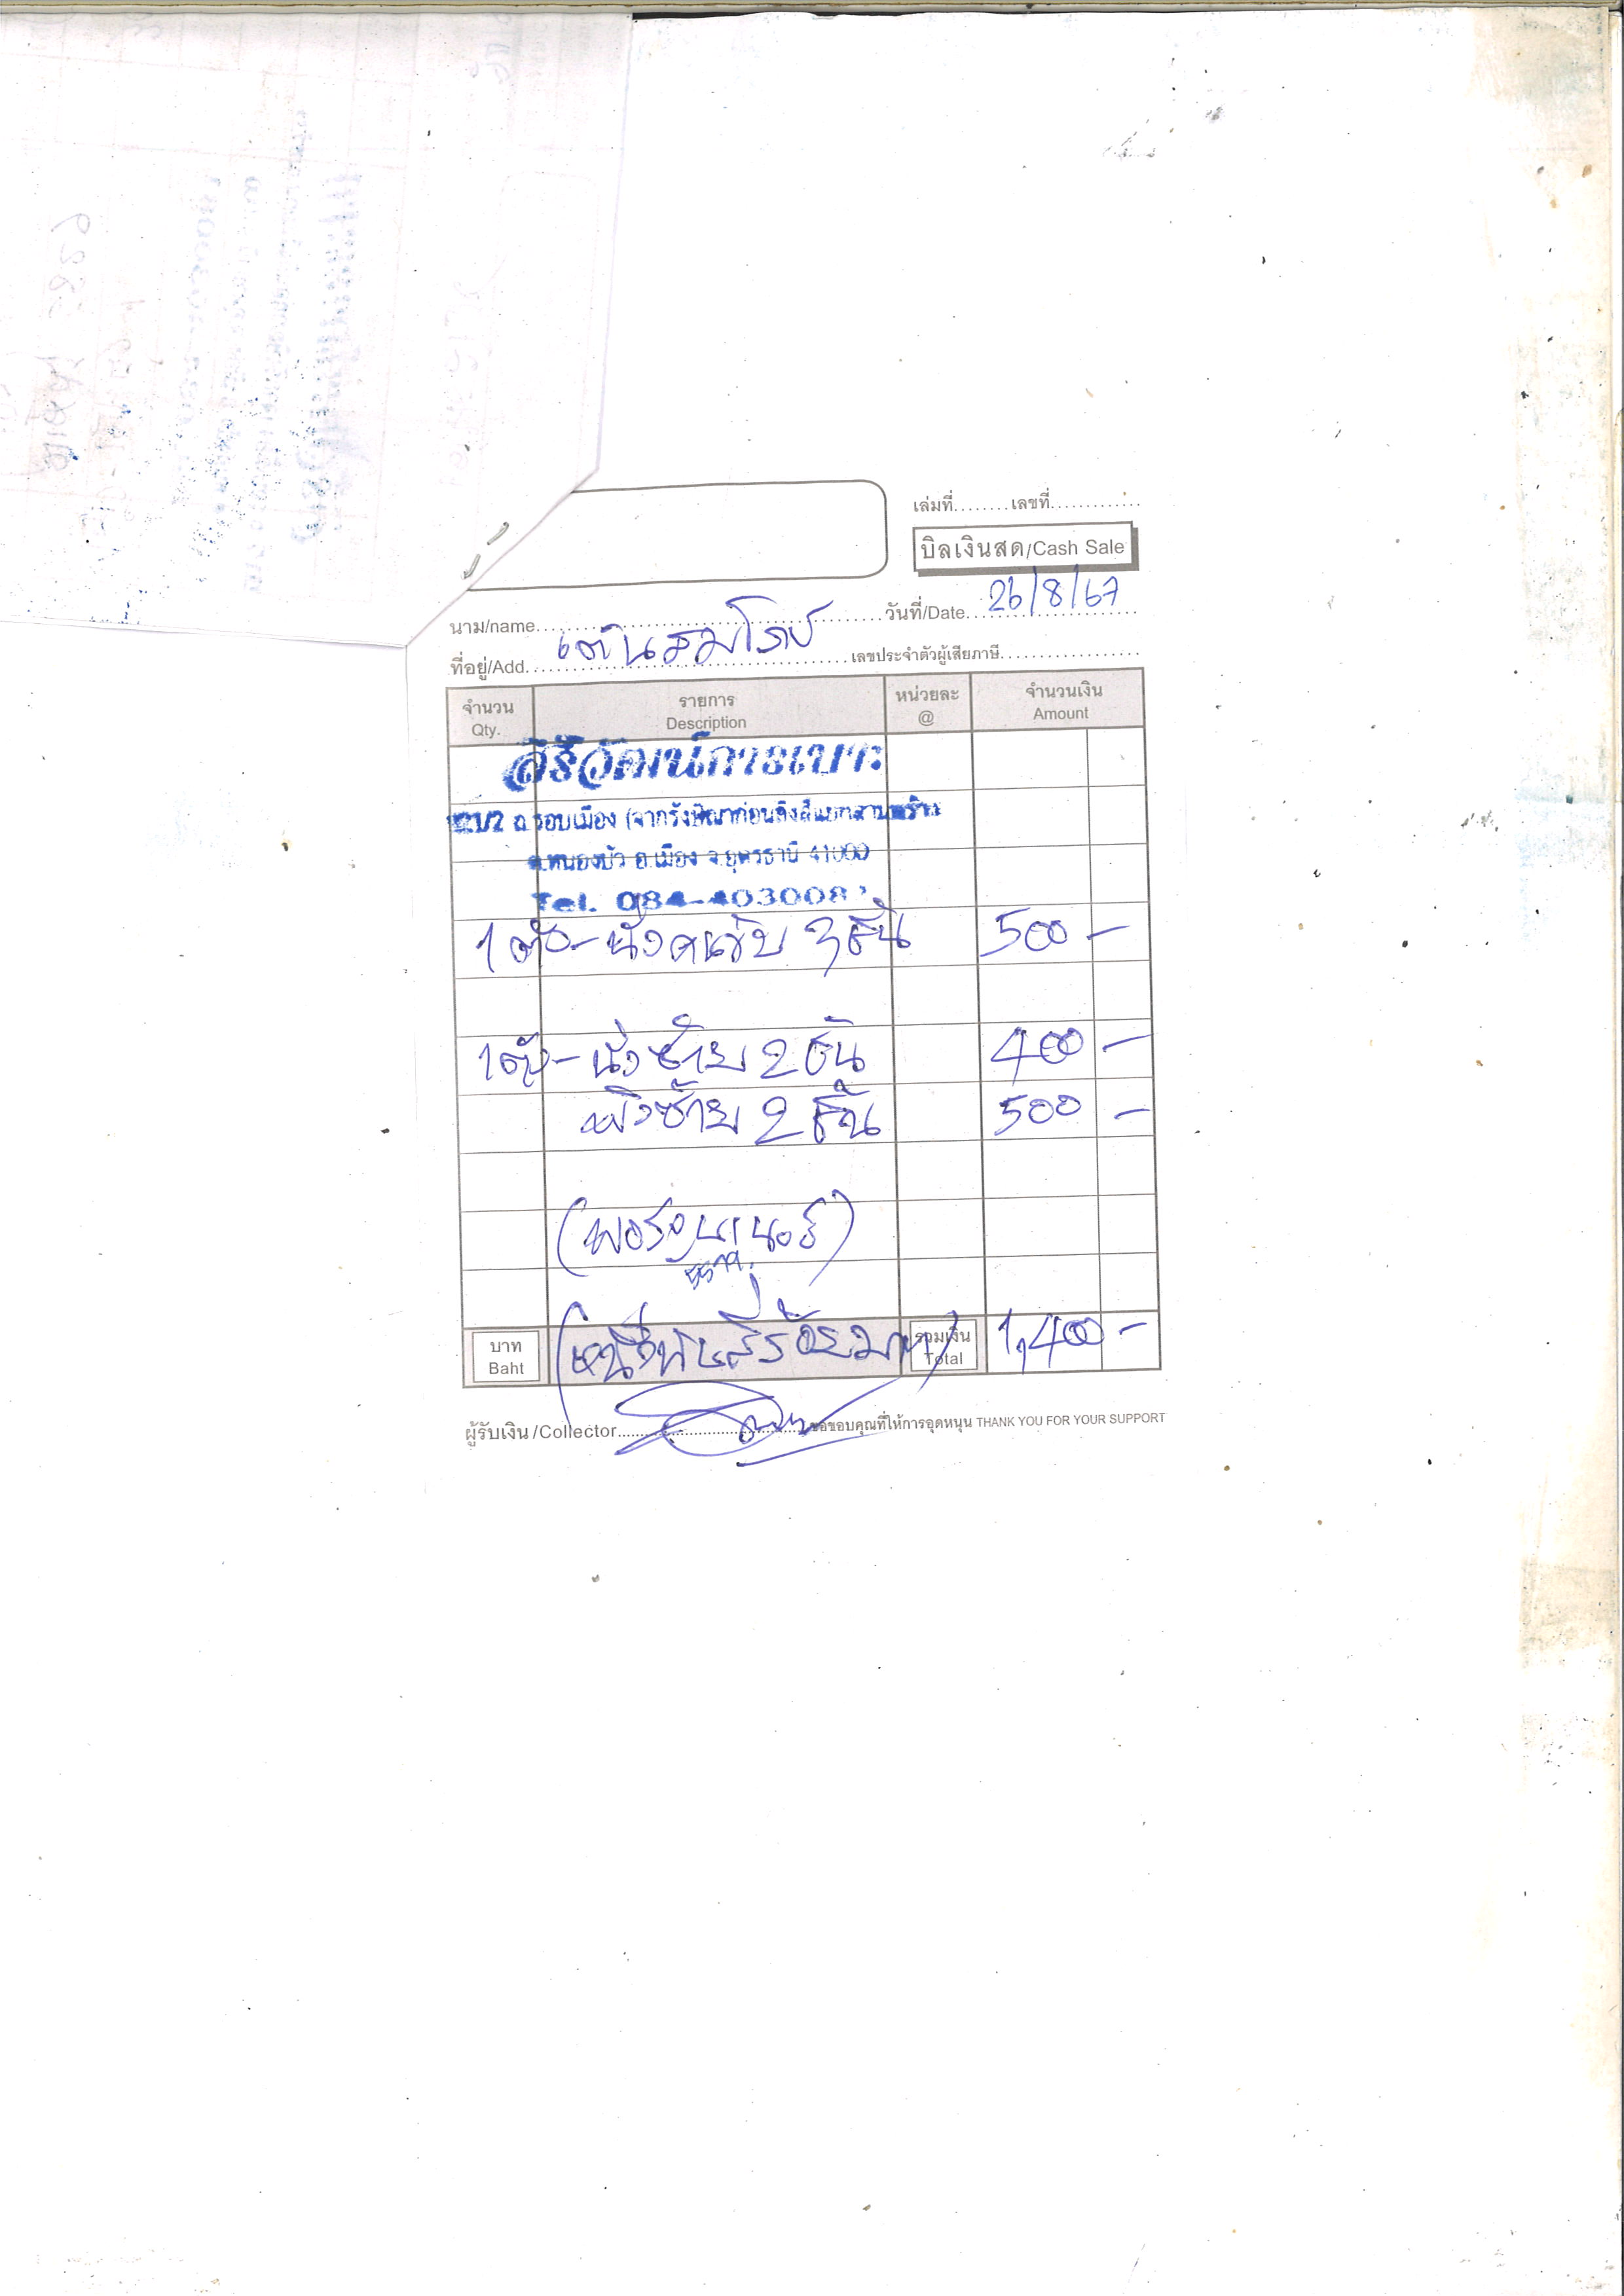 เล่มที่........เลขที่.............
บิลเงินสด/Cash Sale
นาม/name เต้นสมโภช วันที่/Date 26/8/67
ที่อยู่/Add. เลขประจำตัวผู้เสียภาษี
จำนวน รายการ หน่วยละ จำนวนเงิน
Qty. Description @ Amount
สิริวัฒน์การเบาะ
ถ.รอบเมือง
ต.หนองบัว อ.เมือง จ.อุดรธานี 41000
Tel. 084-403008
1 ตัว - นั่งคนขับ 3 ชิ้น 500 -
1 ตัว - นั่งซ้าย 2 ชิ้น 400 -
พิงซ้าย 2 ชิ้น 500 -
(หนึ่งพันสี่ร้อยบาท)
บาท รวมเงิน 1,400 -
Baht Total
ผู้รับเงิน/Collector ขอขอบคุณที่ให้การอุดหนุน THANK YOU FOR YOUR SUPPORT